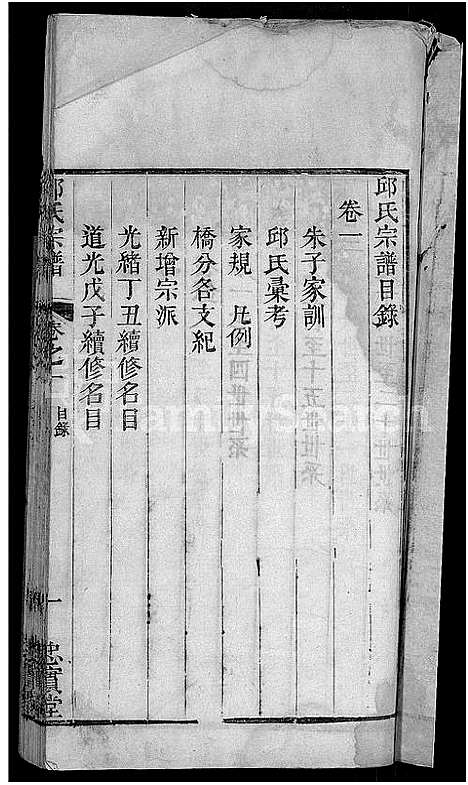 邱氏宗譜目錄
卷一
朱子家訓
邱氏彙考
家規 凡例
橋分各支紀
新增宗派
光緒丁丑續修名目
道光戊子續修名目
邱氏宗譜 卷之一 目錄 一 忠實堂
FamilySearch